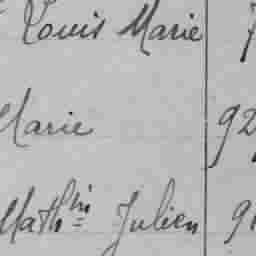 Louis Marie 7
Marie 92
Mathin Julien 91